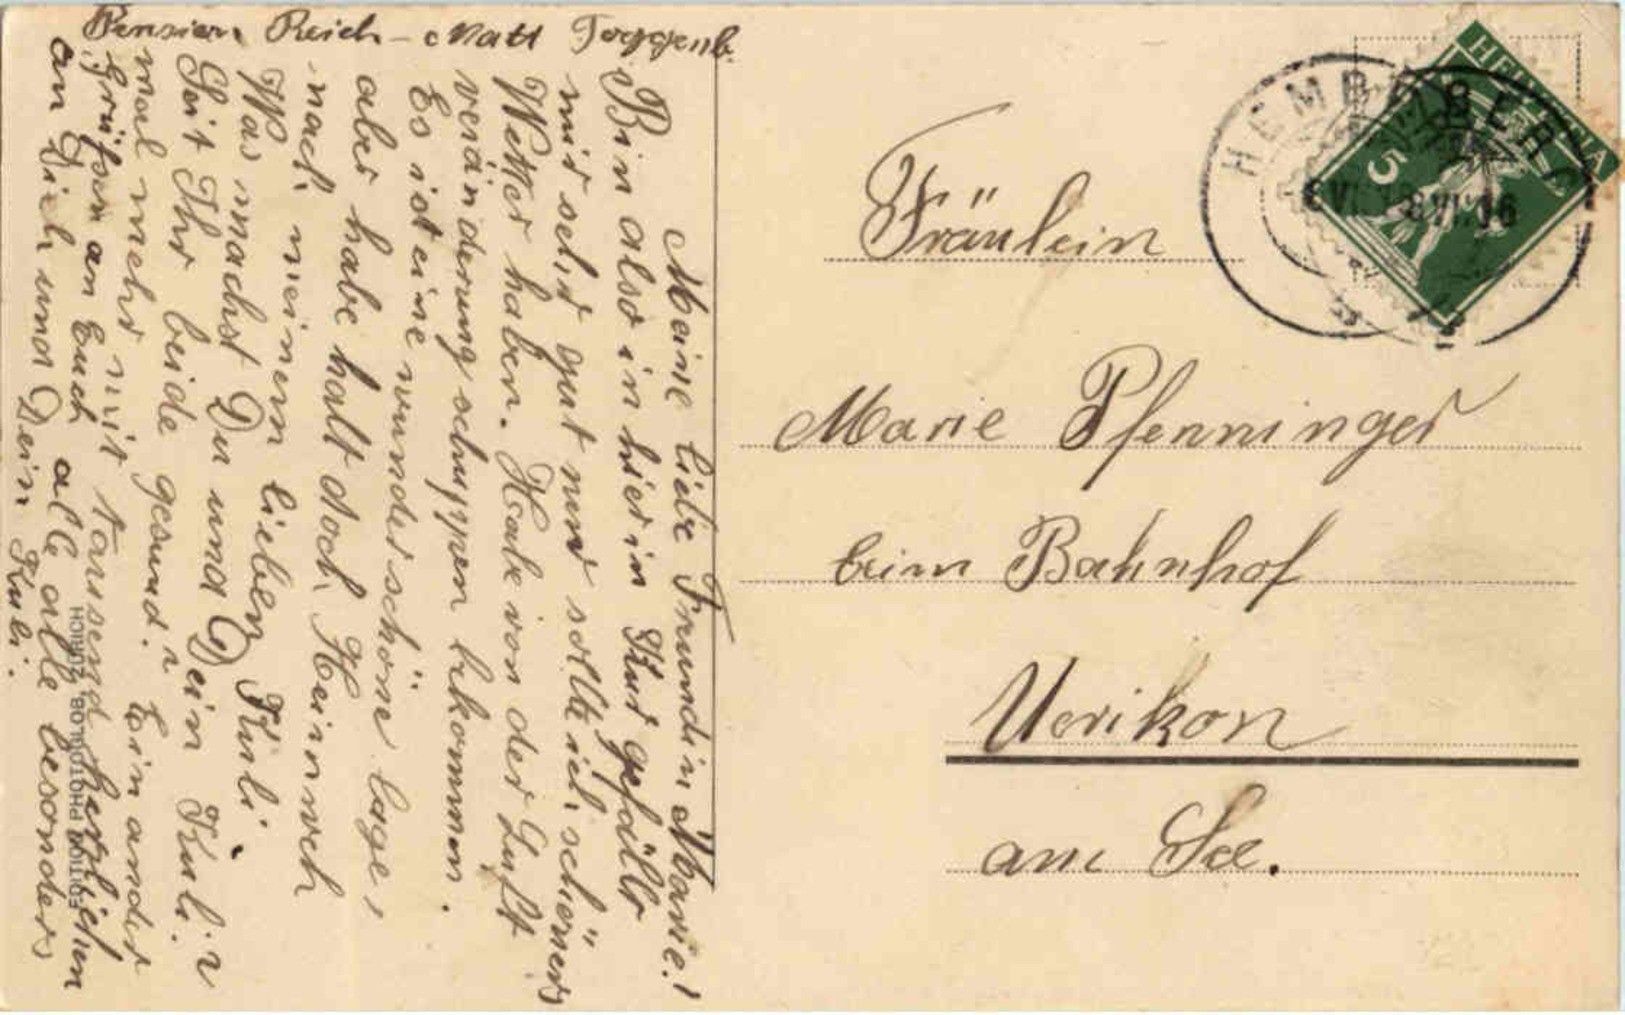 Pension Reich-Matt Toggenb.
Meine liebe Freundin Marie!
Bin also in hier in Kur gefällt
mir sehr gut nur sollte ich schöners
Wetter haben. Habe von der Luft
veränderung schuppen bekommen.
Es ist eine wunderschöne lage,
aber habe halt doch Heimweh
nach meinem lieben Kuli.
Was machst Du und Dein Kuli?
Seit Ihr beide gesund?
Ein ander
mal mehr mit tausend herzlichen
Grüßen an Euch alle alle besonders
an Dich und Dein Kuli.
EDITION PHOTOGLOB, ZÜRICH
Fräulein
Marie Pfenninger
beim Bahnhof
Uerikon
am See.
HELVETIA
5
HEMBERG
VI. 16